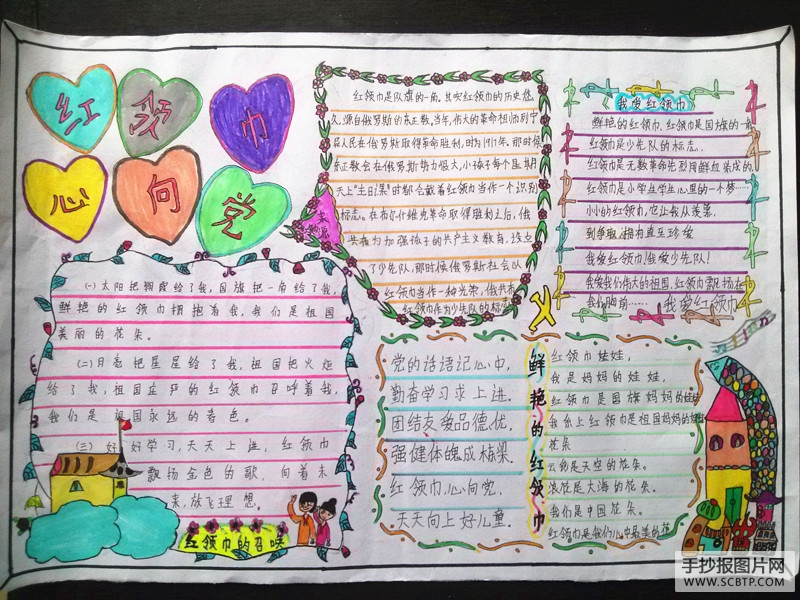 红
领
巾
心
向
党
红领巾是队旗的一角,其实红领巾的历史悠
久,源自俄罗斯的东正教,当年,伟大的革命祖师列宁
人民在俄罗斯取得革命胜利,时为1917年,那时候
东正教会在俄罗斯势力很大,小孩子每个星期
天上"主日课"时都会戴着红领巾当作一个识别
标志。在布尔什维克革命取得胜利之后,俄
共布为加强孩子的共产主义教育,设立
了少先队,那时候俄罗斯社会以
红领巾当作一种光荣,俄共布
红领巾作为少先队的标志
我爱红领巾
鲜艳的红领巾,红领巾是国旗的一角
红领巾是少先队的标志.
红领巾是无数革命先烈用鲜血染成的,
红领巾是小学生学生心里的一个梦……
小小的红领巾,也让我从羡慕.
到争取,拥有直至珍爱
我爱红领巾!我爱少先队!
我爱我们伟大的祖国,红领巾飘扬在
我们胸前……我爱红领巾
(一)太阳把拥戴给了我,国旗把一角给了我,
鲜艳的红领巾拥抱着我,我们是祖国
美丽的花朵。
(二)月亮把星星给了我,祖国把火炬
给了我,祖国庄严的红领巾召唤着我,
我们是祖国永远的春色。
(三)好好学习,天天上进,红领巾
飘扬金色的歌,向着未
来,放飞理想。
红领巾的召唤
党的话语记心中,
勤奋学习求上进.
团结友爱品德优,
强健体魄成栋梁.
红领巾,心向党,
天天向上好儿童.
鲜艳的红领巾
红领巾娃娃,
我是妈妈的娃娃,
红领巾是国旗妈妈的娃娃
我系上红领巾是祖国妈妈的
花朵
云朵是天空的花朵。
浪花是大海的花朵。
我们是中国花朵。
红领巾是我们心中最美的花
手抄报图片网
WWW.SCBTP.COM